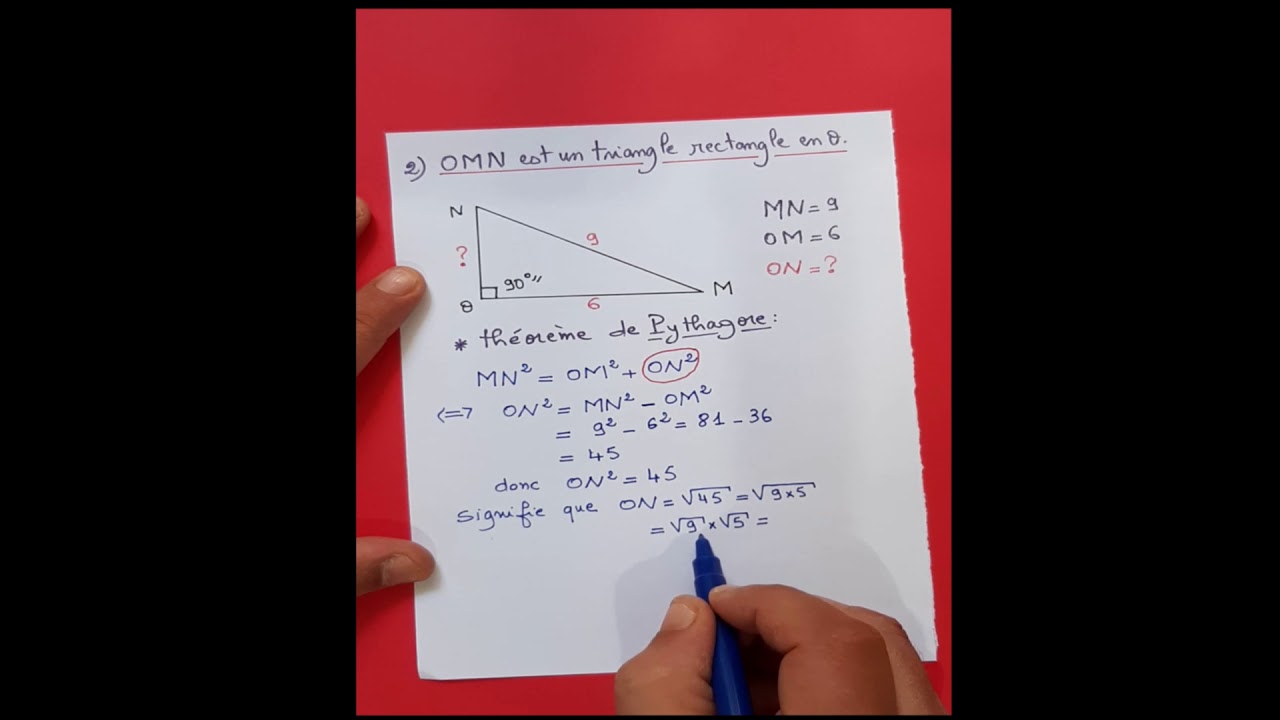 2) OMN est un triangle rectangle en O.
N
9
MN = 9
OM = 6
ON = ?
?
90°
O
6
M
* théorème de Pythagore :
MN² = OM² + ON²
<=> ON² = MN² - OM²
= 9² - 6² = 81 - 36
= 45
donc ON² = 45
signifie que ON = √45 = √9×5
= √9 × √5 =